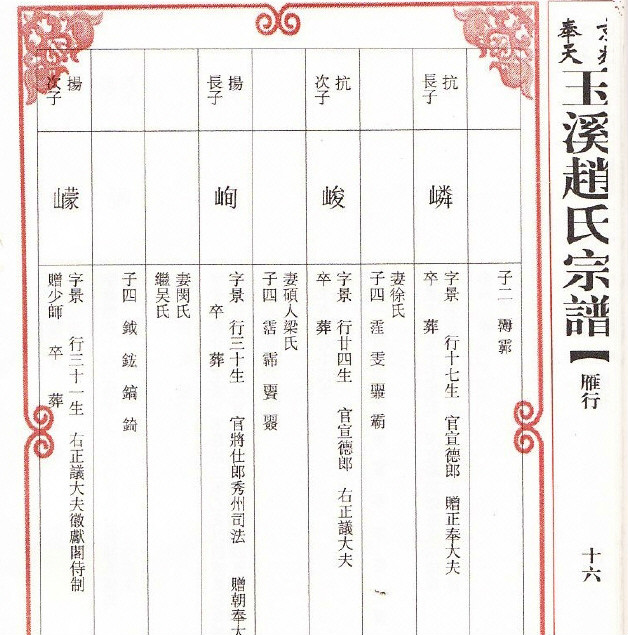 奉天
玉溪趙氏宗譜【
雁行
十六
子二
抗長子
嶙
字景 行十七生 官宣德郎 贈正奉大夫
卒 葬
妻徐氏
子四 霔 雯
抗次子
峻
字景 行廿四生 官宣德郎 右正議大夫
卒 葬
妻碩人梁氏
子四
揚長子
峋
字景 行三十生 官將仕郎秀州司法 贈朝奉大
卒 葬
妻閔氏
繼吳氏
子四 鉞 鋐 鎬 錡
揚次子
㠓
字景 行三十一生 右正議大夫徽獻閣侍制
贈少師 卒 葬